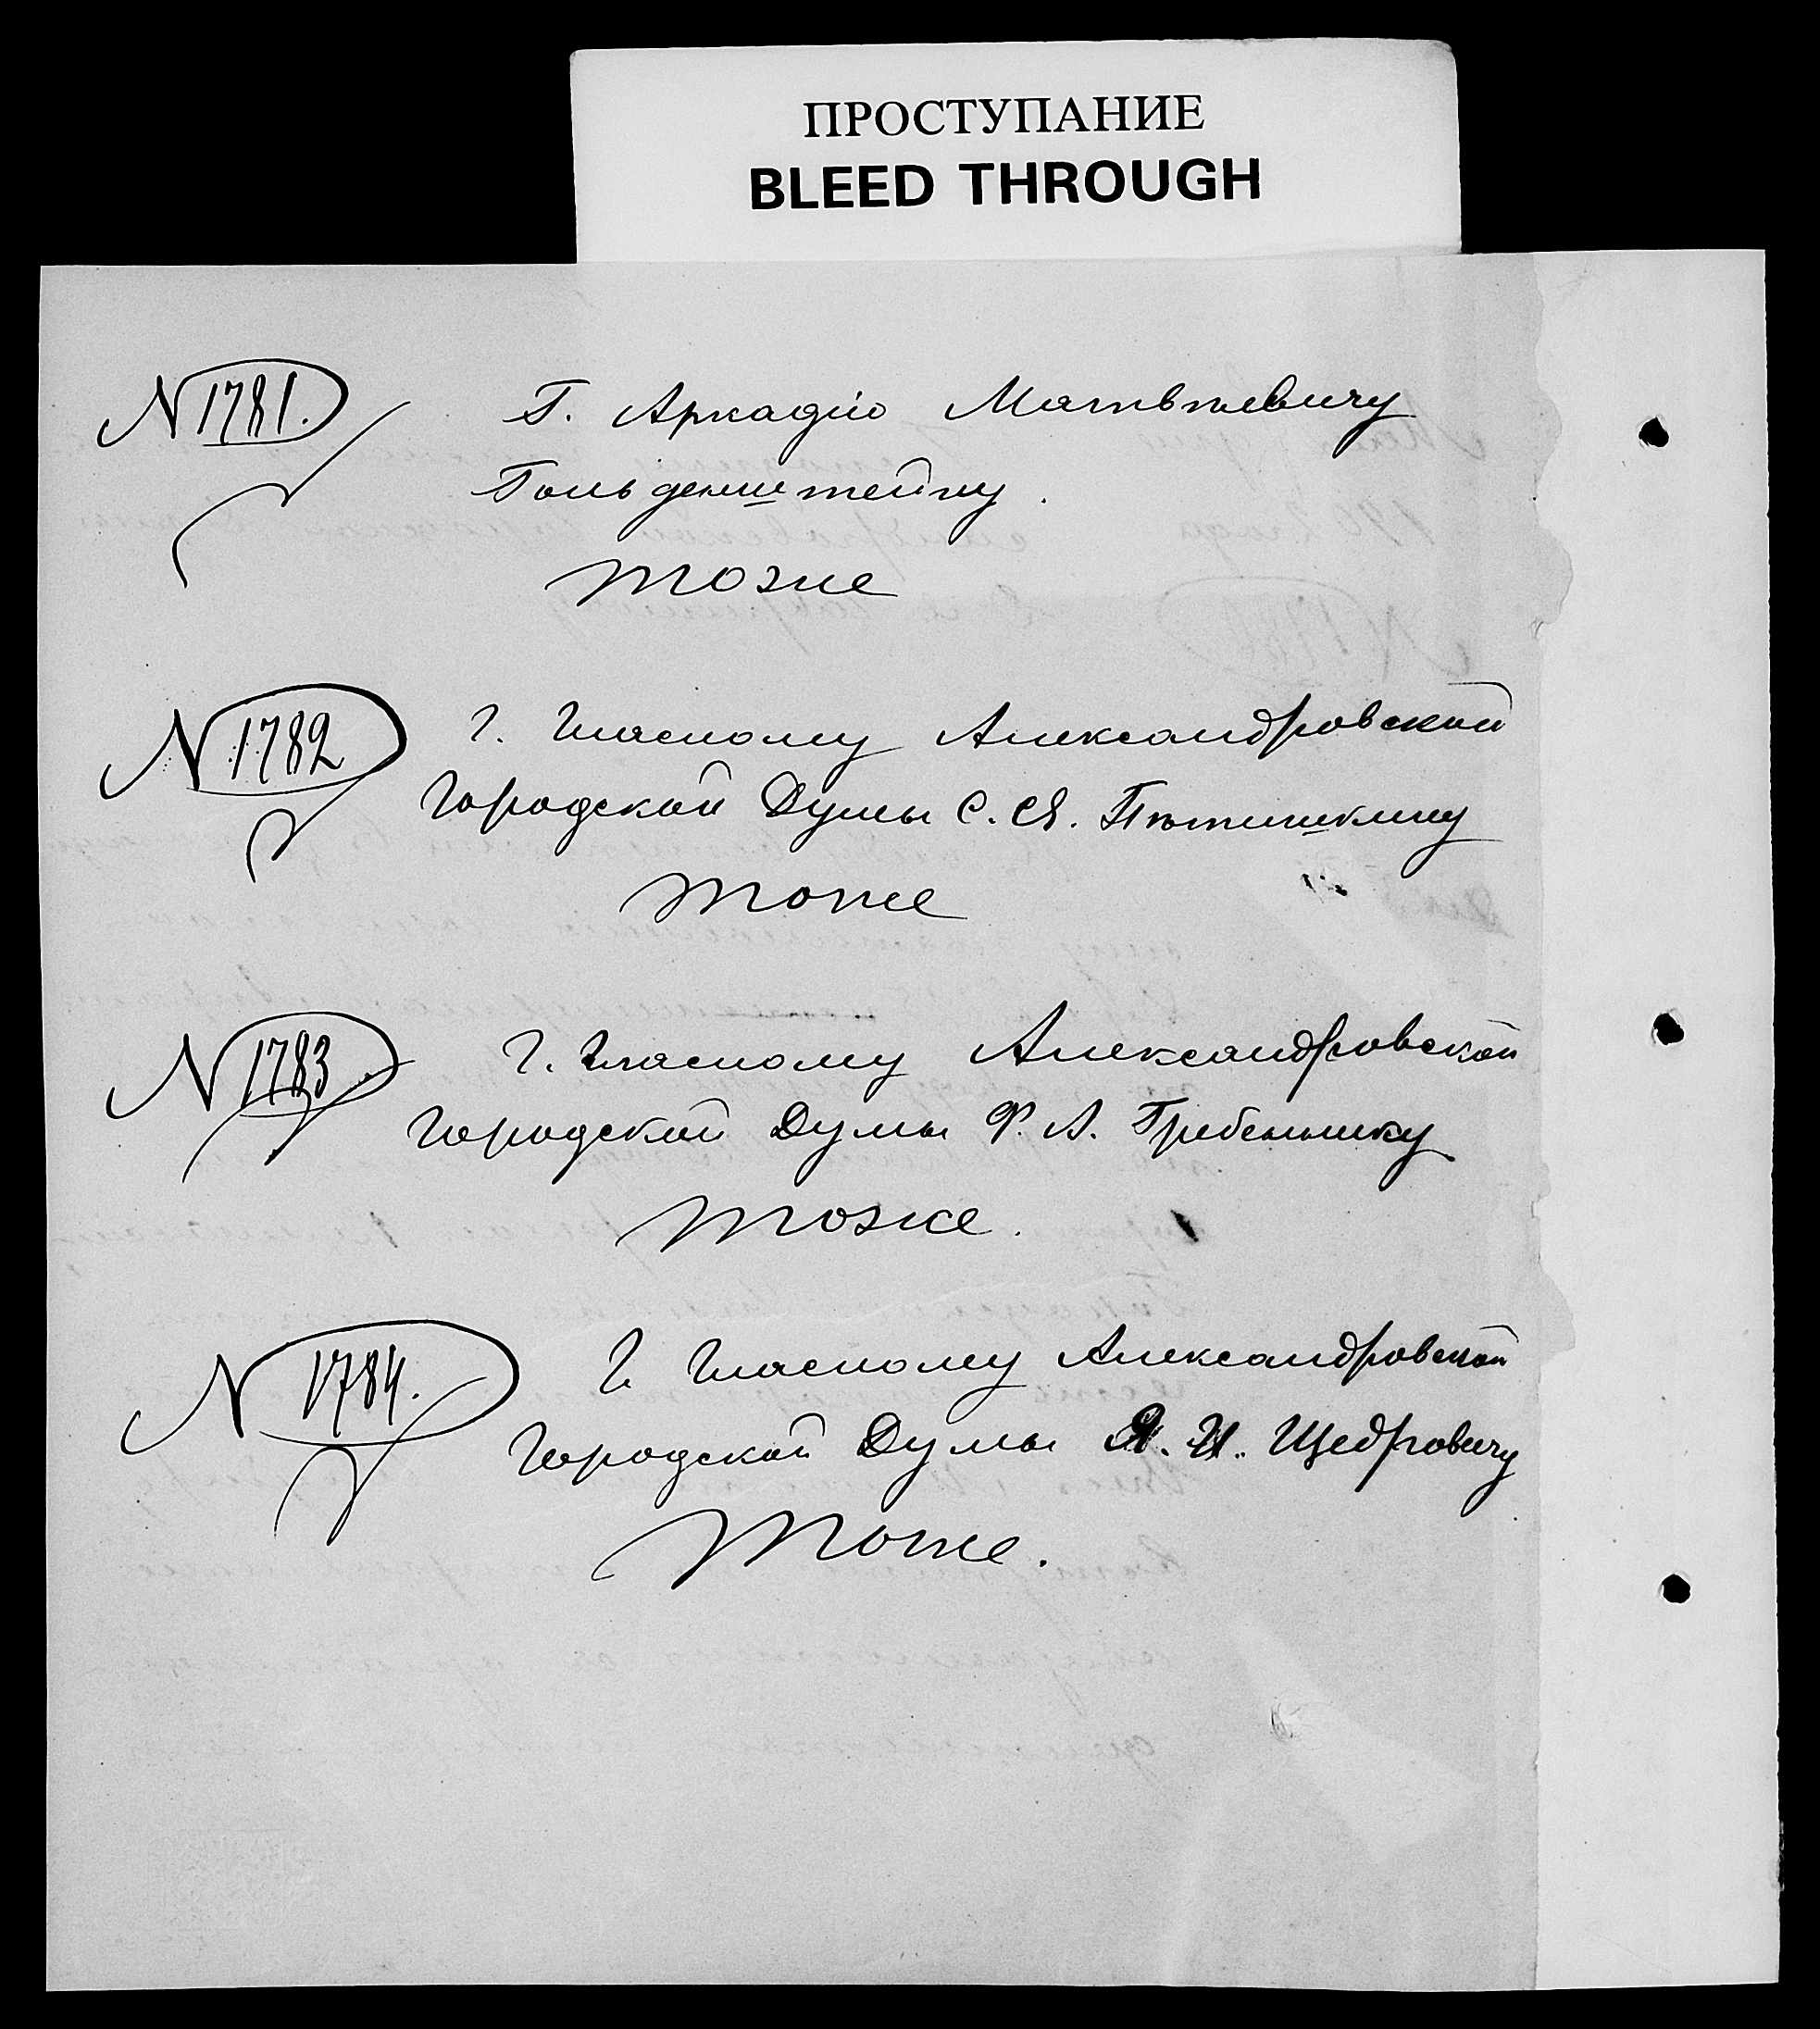 ПРОСТУПАНИЕ
BLEED THROUGH
N 1781.
Г. Аркадію Матвѣевичу
Гольденштейну.
тоже
N 1782
Г. Гласному Александровской
Городской Думы С. Я. Пѣтишкину
тоже
N 1783
Г. Гласному Александровской
Городской Думы Ф. А. Гребеннику
тоже.
N 1784.
Г. Гласному Александровской
Городской Думы Я. И. Щедровичу
тоже.